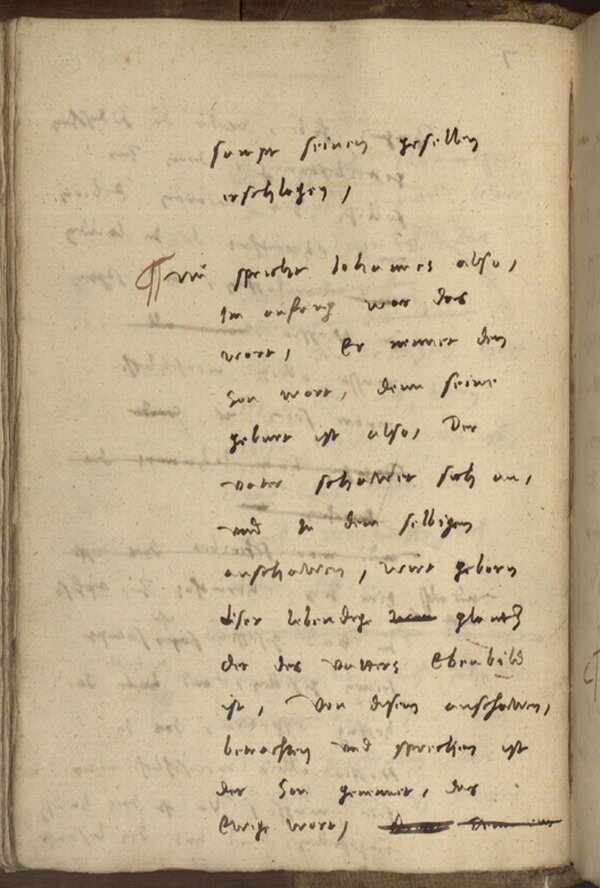 sampt seinen gesellen
erschlagen,
¶ Nu spricht Johannes also,
Im anfang war das
wort, Er nennet den
Son wort, denn seine
geburt ist also, Der
vater schawet sich an,
und in dem selbigen
anschawen, wirt geborn
diser lebendige glantz
der des vatters Ebenbild
ist, Von disem anschawen,
betrachten und sprechen ist
der Son genennet, das
Ewige wort,